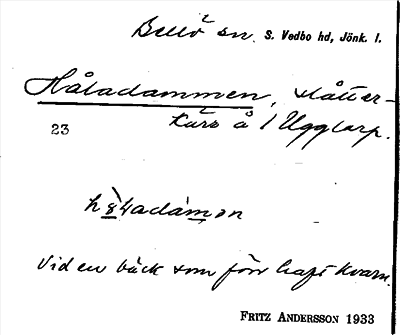 Bellö sn. S. Vedbo hd, Jönk. l.
Håladammen, slåtter-
kärs å 1 Ugglarp.
23
Vid en bäck som förr haft kvarn.
FRITZ ANDERSSON 1933